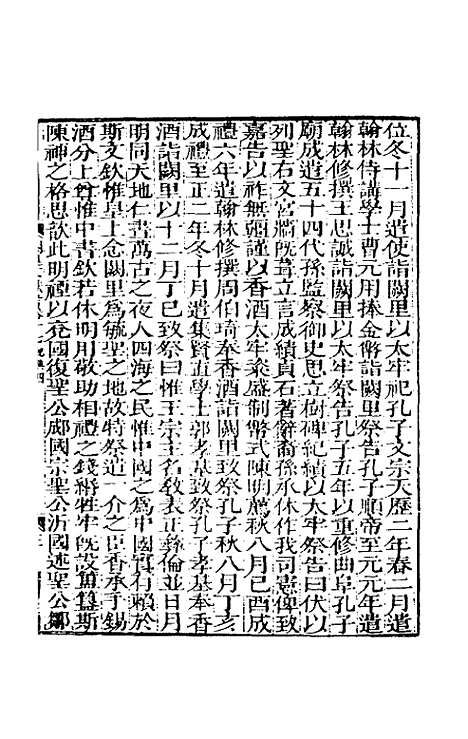 位冬十一月遣使詣闕里以太牢祀孔子文宗天歷二年春二月遣
翰林侍講學士曹元用捧金幣詣闕里祭告孔子順帝至元元年遣
翰林修撰王思誠詣闕里以太牢祭告孔子五年以重修曲阜孔子
廟成遣五十四代孫監察御史思立樹碑紀績以太牢祭告曰伏以
列聖右文宮牆旣葺立言成績貞石著辭裔孫承休作我司憲俾致
嘉告以祚無疆謹以香酒太牢粢盛制幣式陳明薦秋八月己酉成
禮六年遣翰林修撰周伯琦奉香酒詣闕里致祭孔子秋八月丁亥
成禮至正二年冬十月遣集賢直學士郭孝基致祭孔子孝基奉香
酒詣闕里以十二月丁巳致祭曰惟王宗主名敎表正彝倫並日月
明同天地仁晝萬古之夜人四海之民惟中國之爲中國實有賴於
斯文欽惟皇上念闕里爲毓聖之地故特祭遣一介之臣香承于錫
酒分上尊惟中書欽若休明用敬助相禮之錢緡牲牢旣設籩簋斯
陳神之格思歆此明禋以兗國復聖公郕國宗聖公沂國述聖公鄒